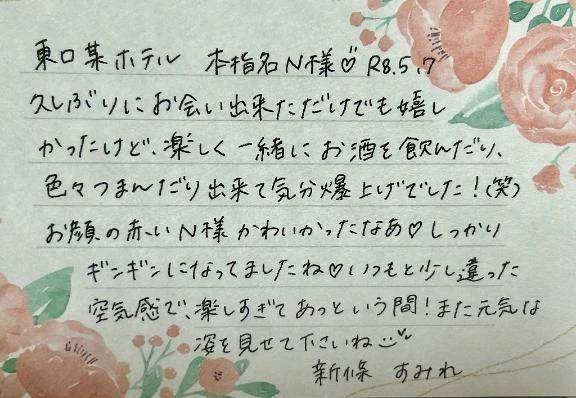 東口某ホテル 本指名N様♡ R8.5.7
久しぶりにお会い出来ただけでも嬉し
かったけど、楽しく一緒にお酒を飲んだり、
色々つまんだり出来て気分爆上げでした！(笑)
お顔の赤いN様かわいかったなあ♡しっかり
ギンギンになってましたね♡いつもと少し違った
空気感で、楽しすぎてあっという間！また元気な
姿を見せて下さいね
新條 すみれ